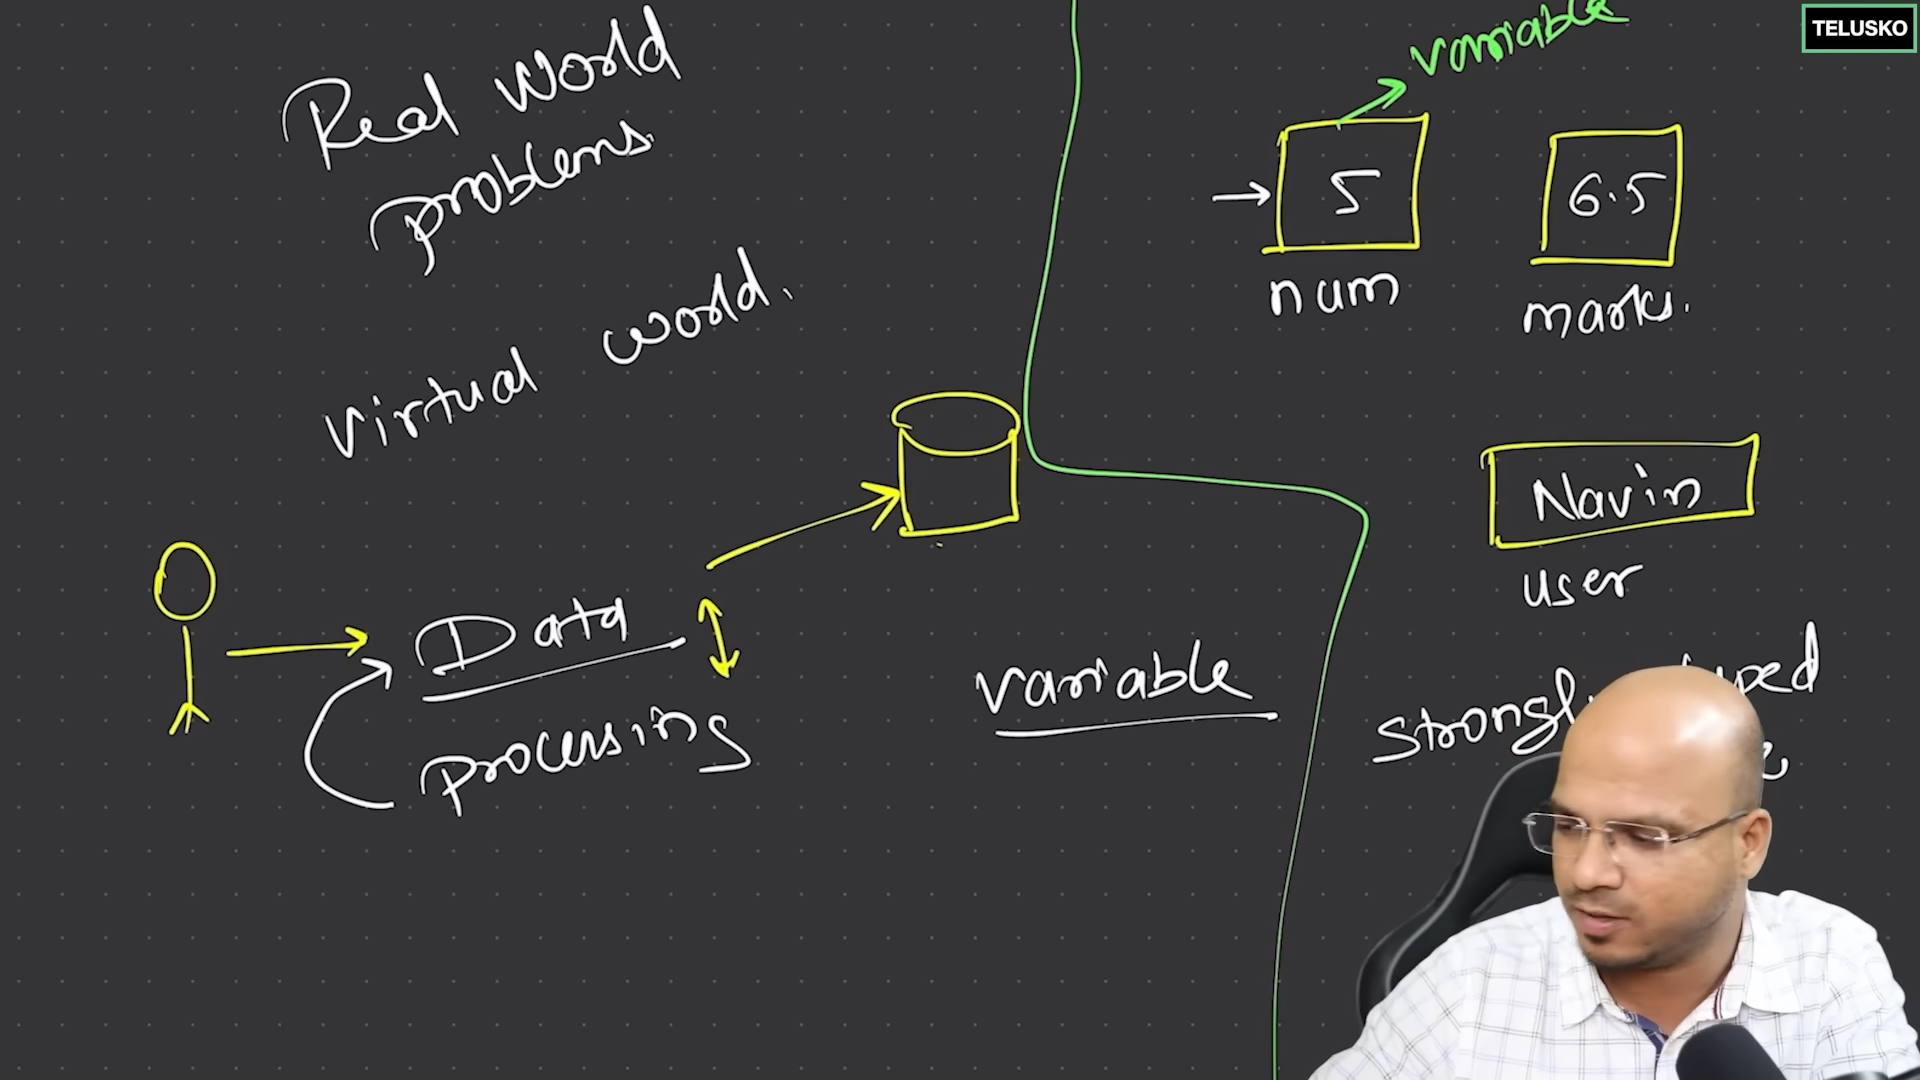 Real World
problems.
Virtual world.
Data
processing
variable
variable
5
num
6.5
marks.
Navin
user
TELUSKO